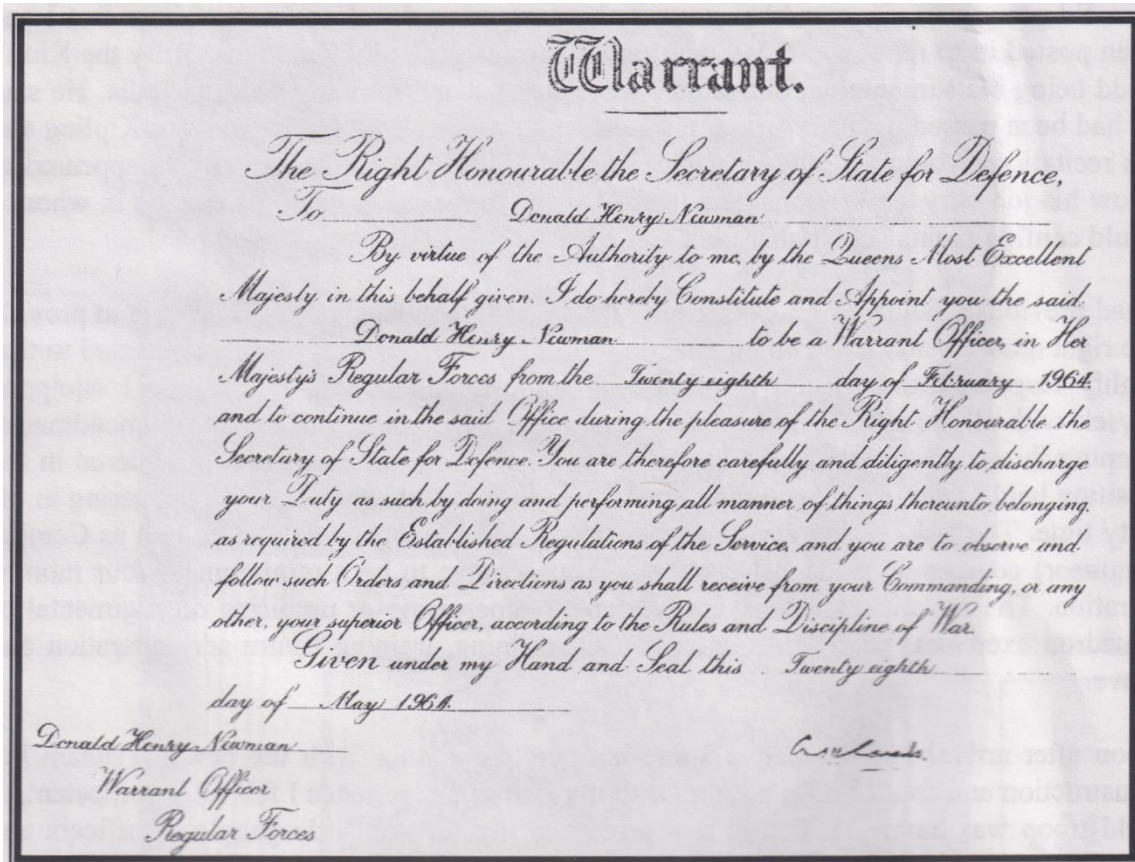 Warrant.
The Right Honourable the Secretary of State for Defence,
To Donald Henry Newman
By virtue of the Authority to me, by the Queens Most Excellent
Majesty in this behalf given. I do hereby Constitute and Appoint you the said.
Donald Henry Newman to be a Warrant Officer, in Her
Majesty's Regular Forces from the Twenty eighth day of February 1964.
and to continue in the said Office during the pleasure of the Right Honourable the
Secretary of State for Defence. You are therefore carefully and diligently to discharge
your Duty as such by doing and performing all manner of things thereunto belonging,
as required by the Established Regulations of the Service, and you are to observe and
follow such Orders and Directions as you shall receive from your Commanding, or any
other, your superior Officer, according to the Rules and Discipline of War.
Given under my Hand and Seal this Twenty eighth
day of May 1964.
Donald Henry Newman
Warrant Officer
Regular Forces